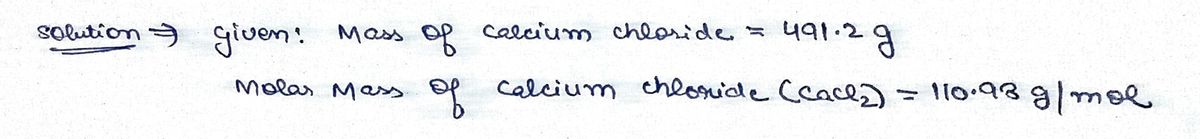 solution ⇒ given: Mass of calcium chloride = 491.2 g
Molar Mass of calcium chloride (CaCl2) = 110.98 g/mol